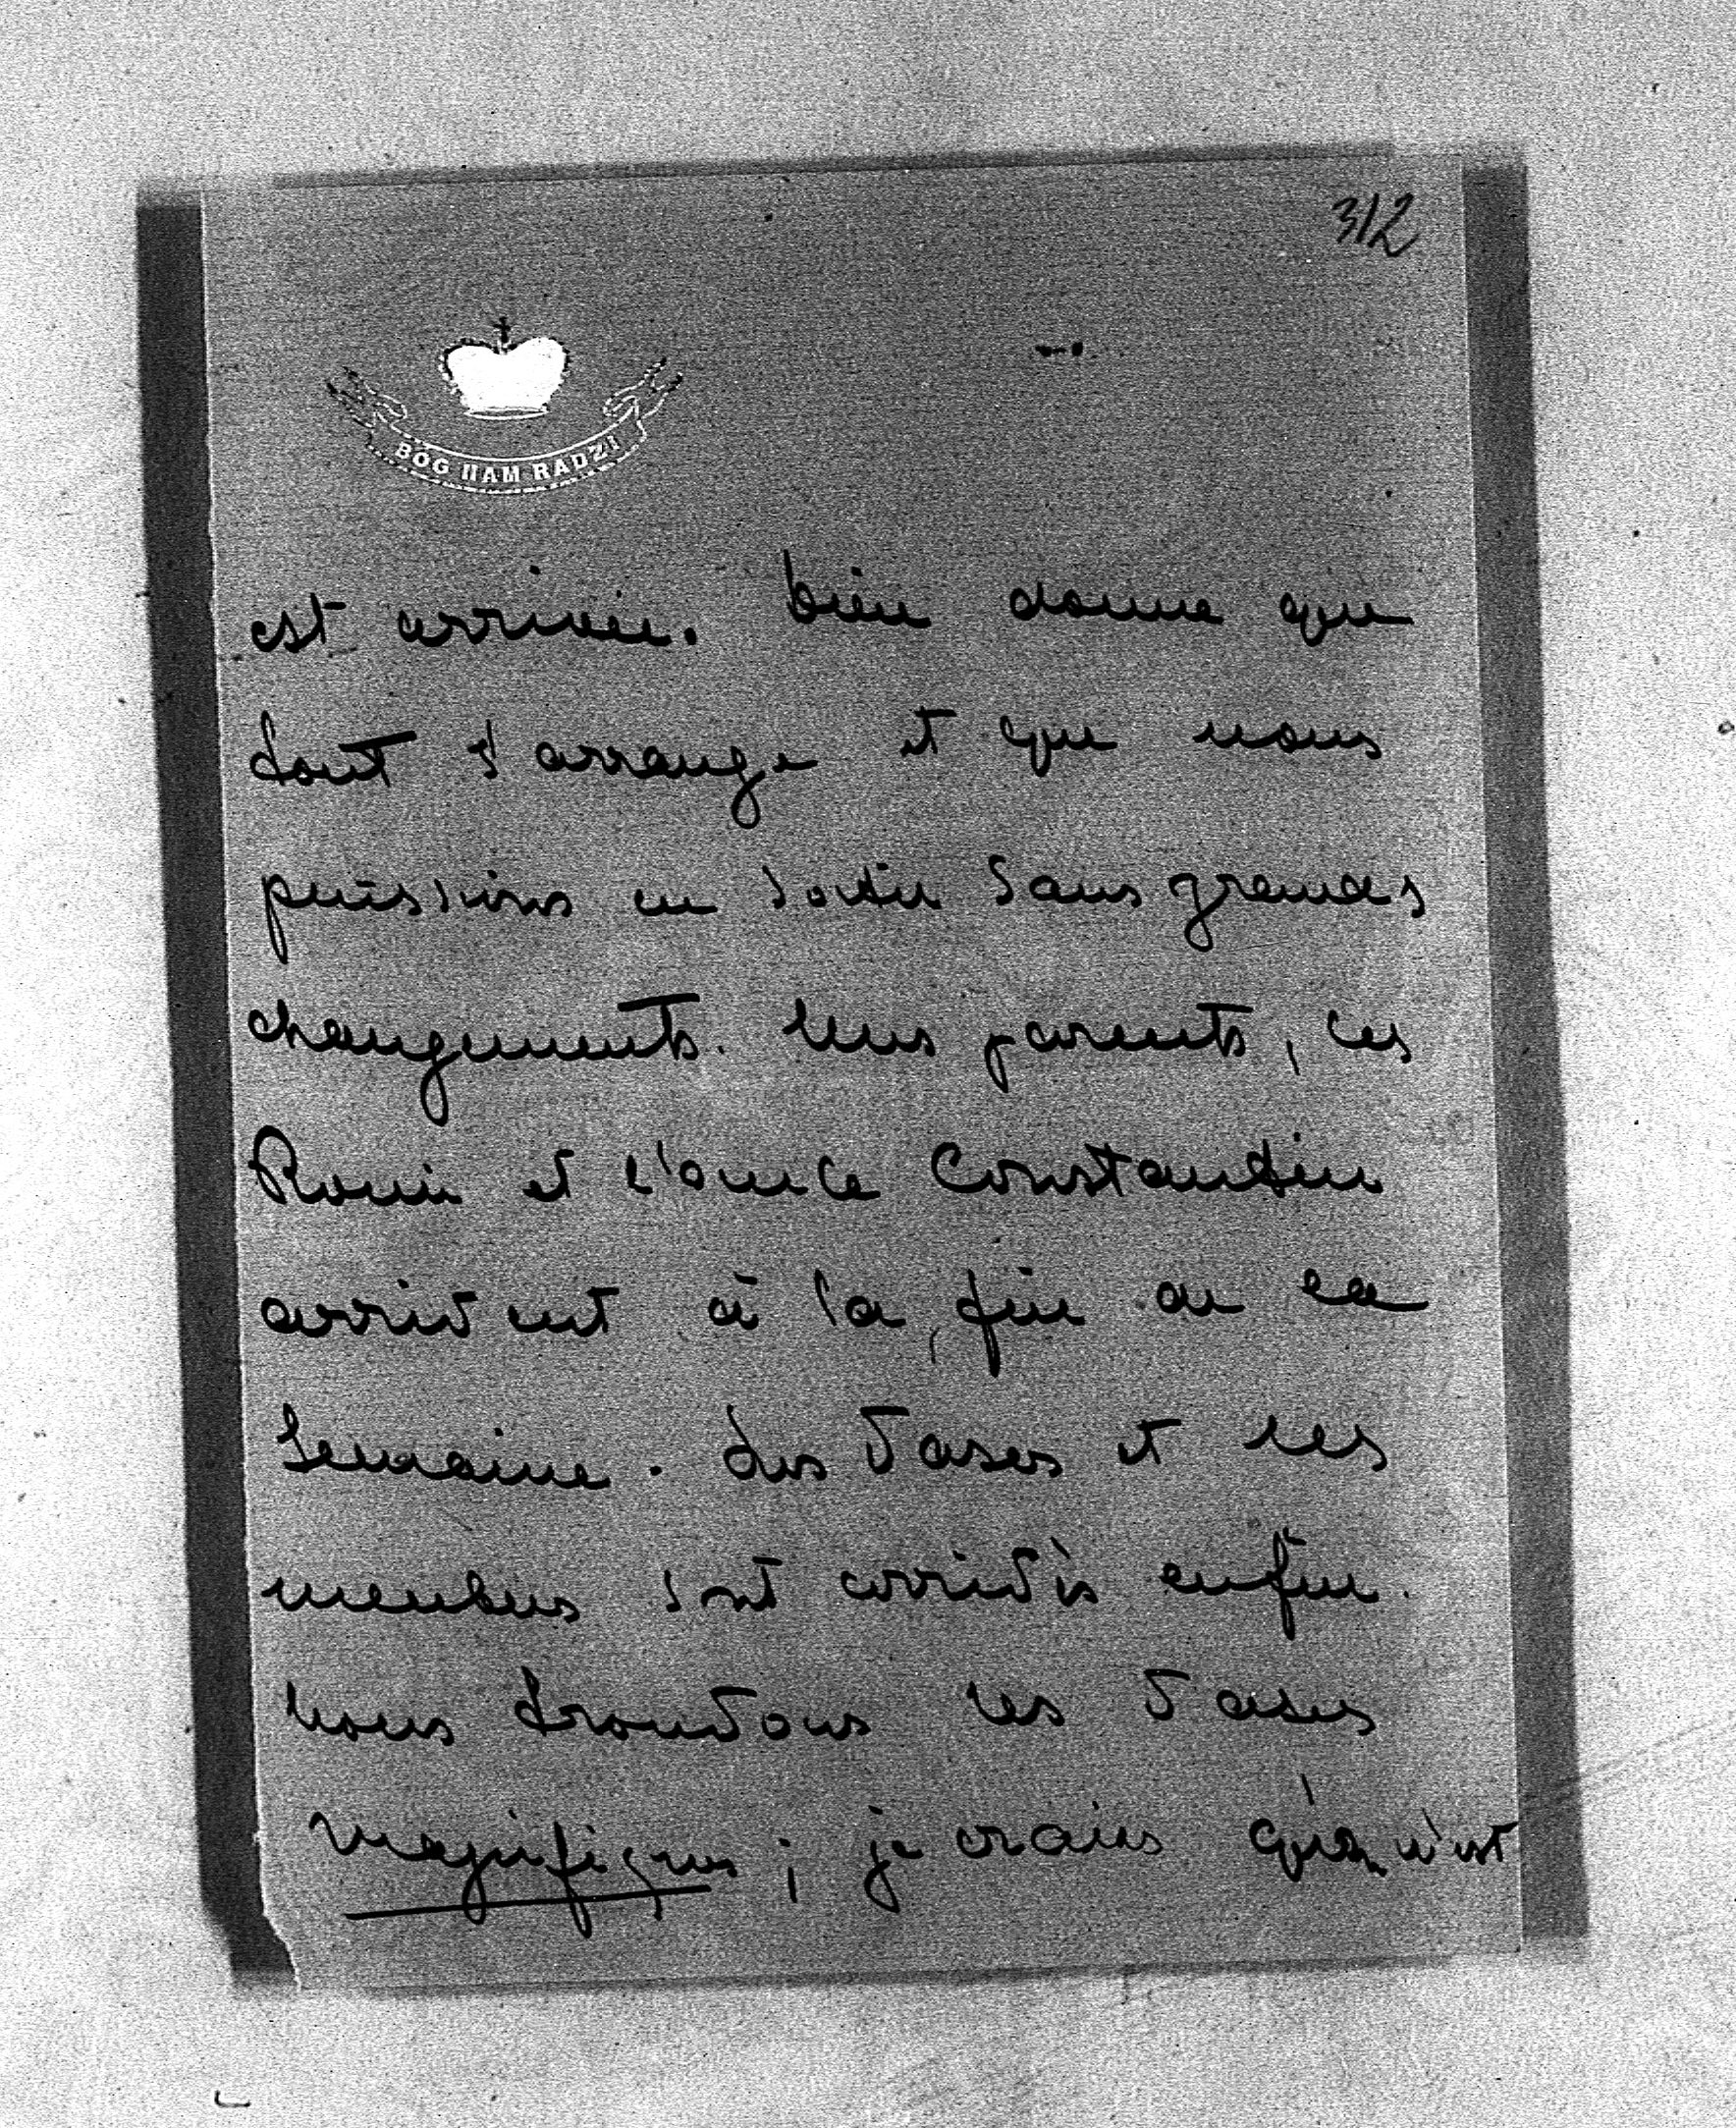 312
BÓG NAM RADZI
est arrivée. bien donne que
tout s'arrange et que nous
puissions en sortir sans grandes
changements. leurs parents, les
et l'oncle Constantin
arrivent à la fin de la
semaine. Les vases et les
meubles sont arrivés enfin.
Nous trouvons les vases
magnifiques ; je crains n'est